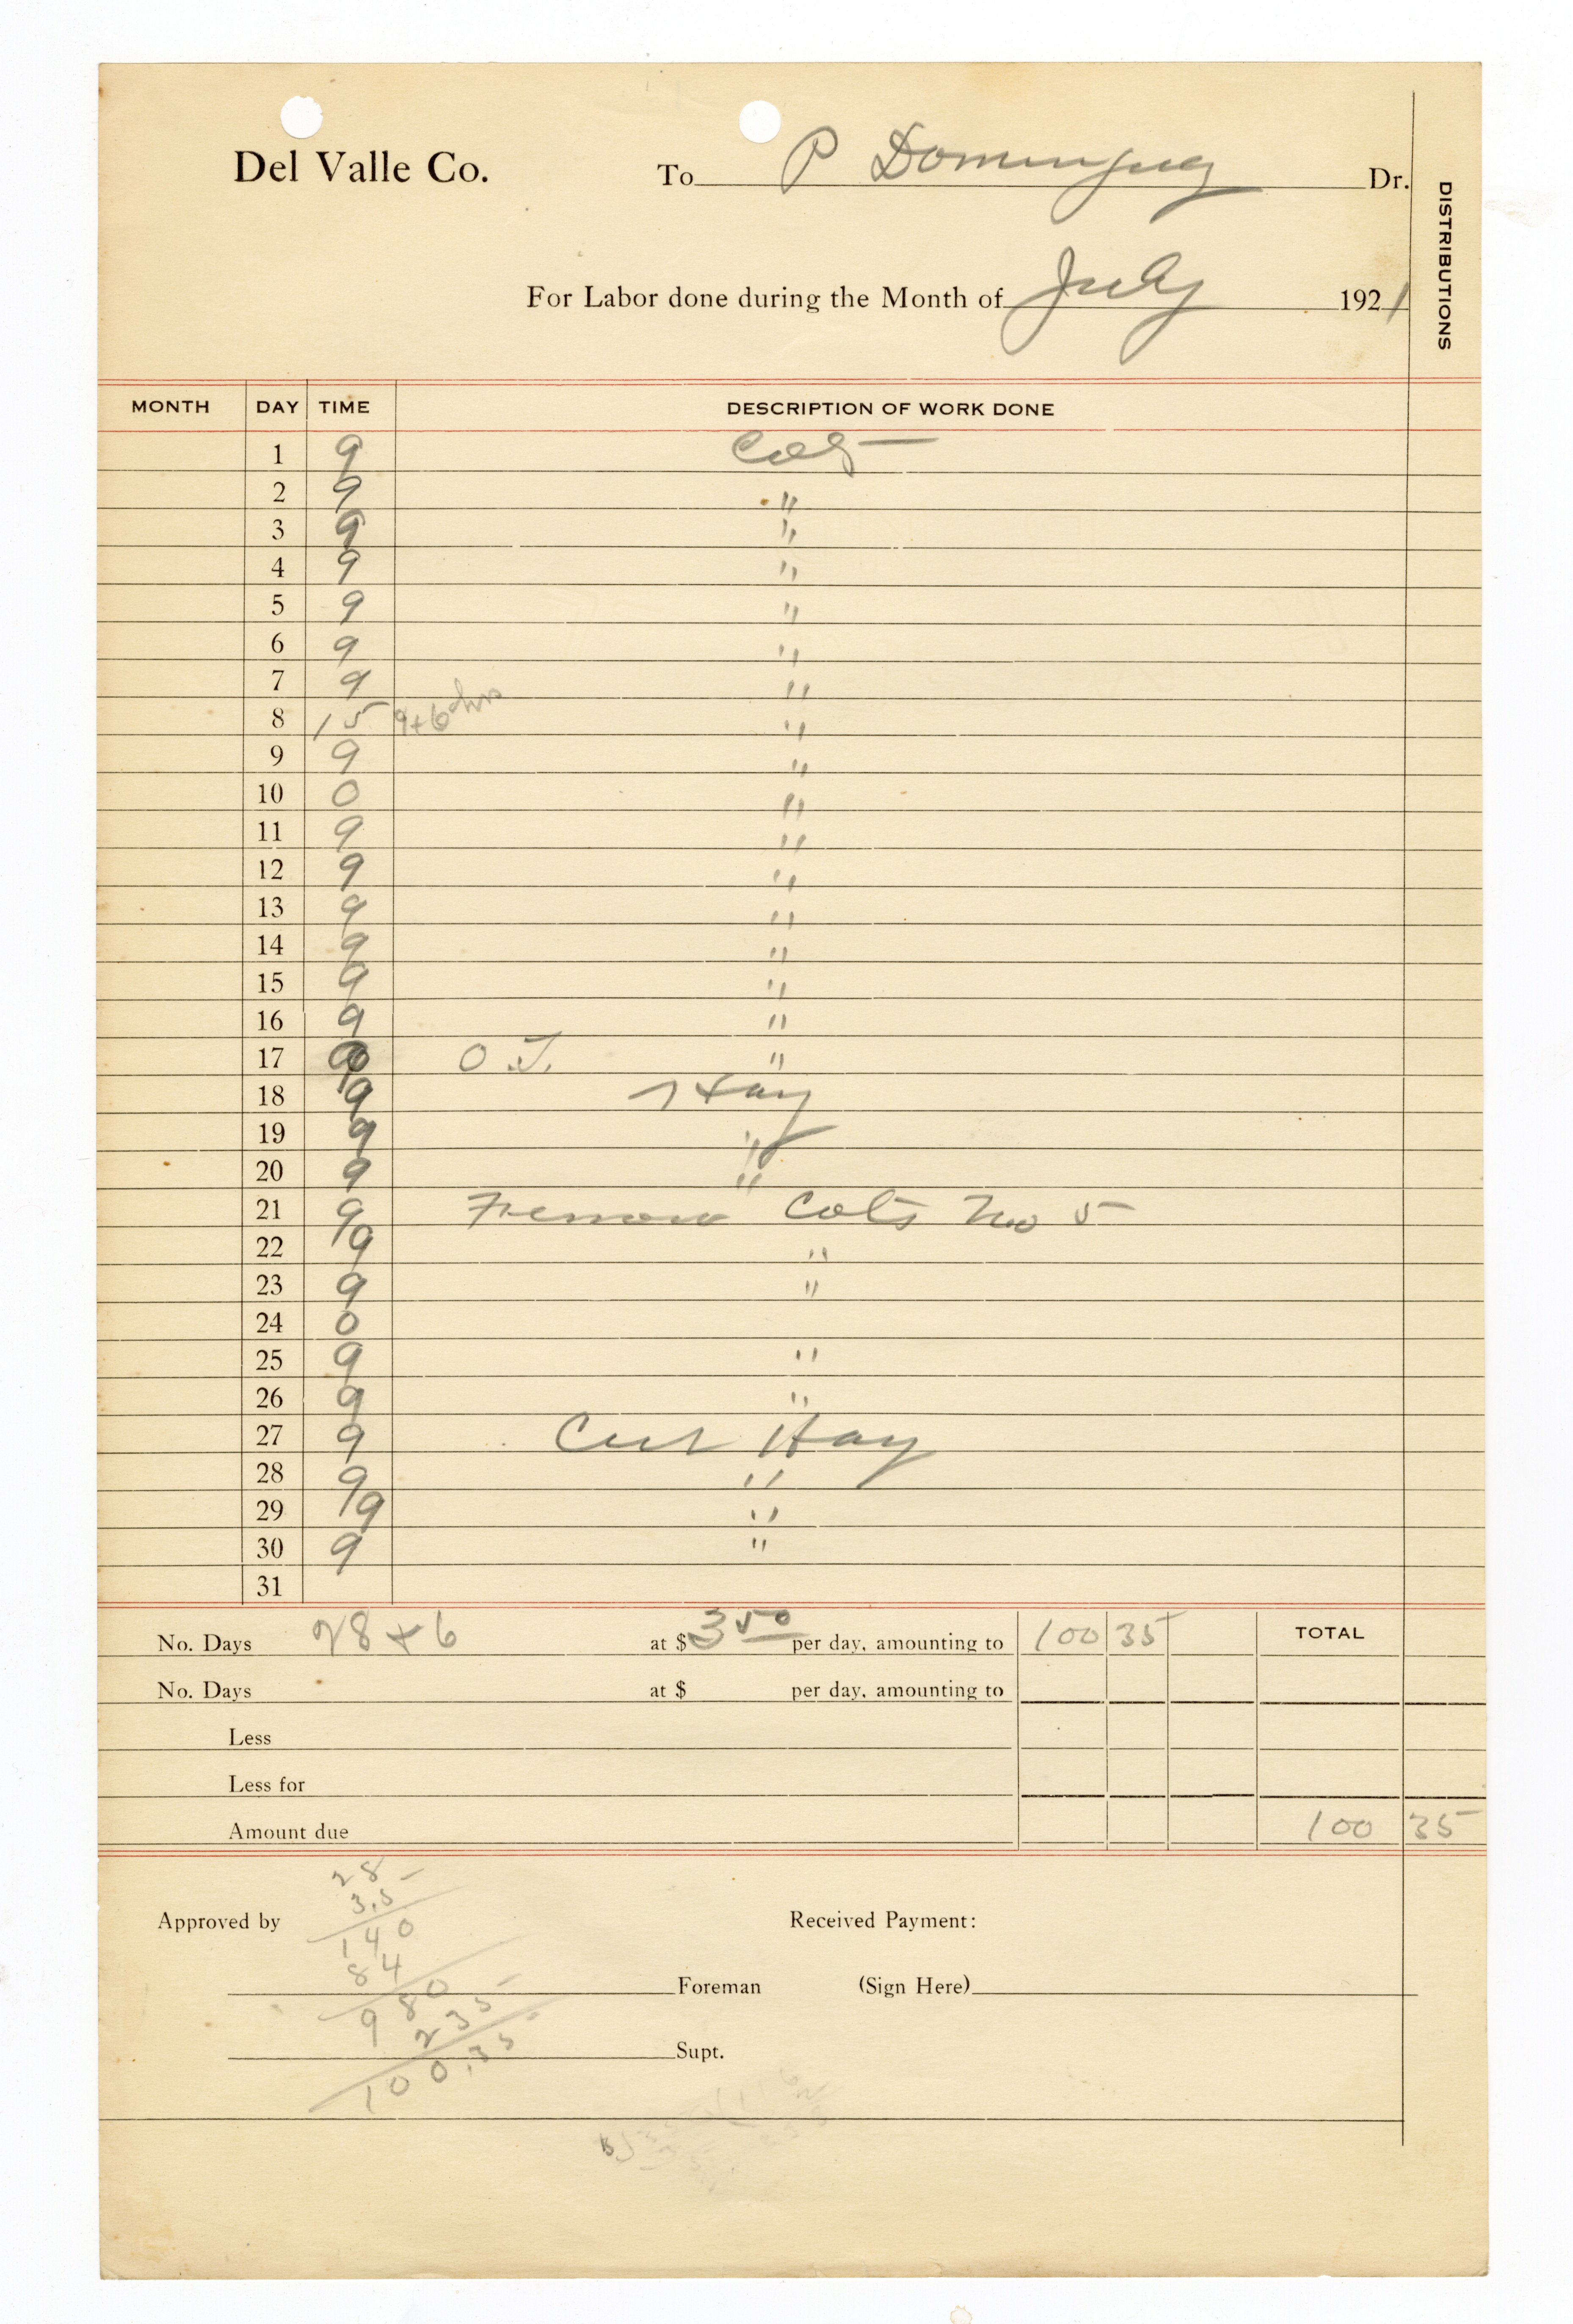 Del Valle Co. To P Dominguez Dr.
DISTRIBUTIONS
For Labor done during the Month of July 1921
MONTH DAY TIME DESCRIPTION OF WORK DONE
1 9
2 9 "
3 9 "
4 9 "
5 9 "
6 9 "
7 9 "
8 15 9+6 hrs "
9 9 "
10 0 "
11 9 "
12 9 "
13 9 "
14 9 "
15 9 "
16 9 "
17 O T. "
18 9 Hay
19 9 "
20 9 "
21 9 Colts No 5
22 9 "
23 9 "
24 0
25 9 "
26 9 "
27 9 Cut Hay
28 9 "
29 9 "
30 9 "
31
No. Days 28+6 at $ 3 50 per day, amounting to 100 35 TOTAL
No. Days at $ per day, amounting to
Less
Less for
Amount due 100 35
28
3.5
Approved by Received Payment:
140
84
Foreman (Sign Here)
980
235
Supt.
100.35